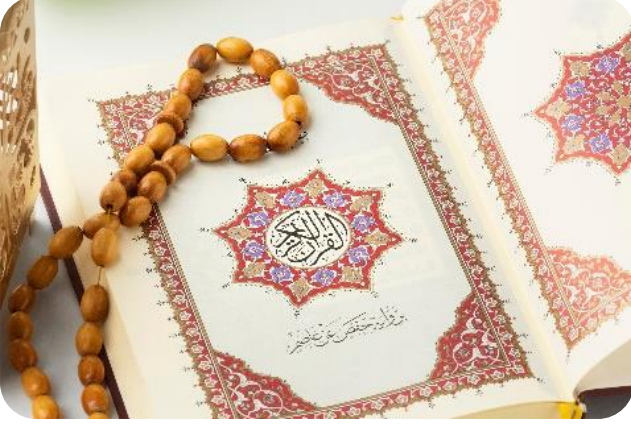 القرآن الكريم
برواية حفص عن عاصم